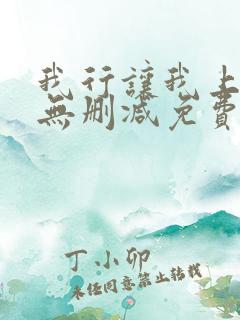 我行讓我上
無刪减免費
丁小卯
未經同意禁止轉載